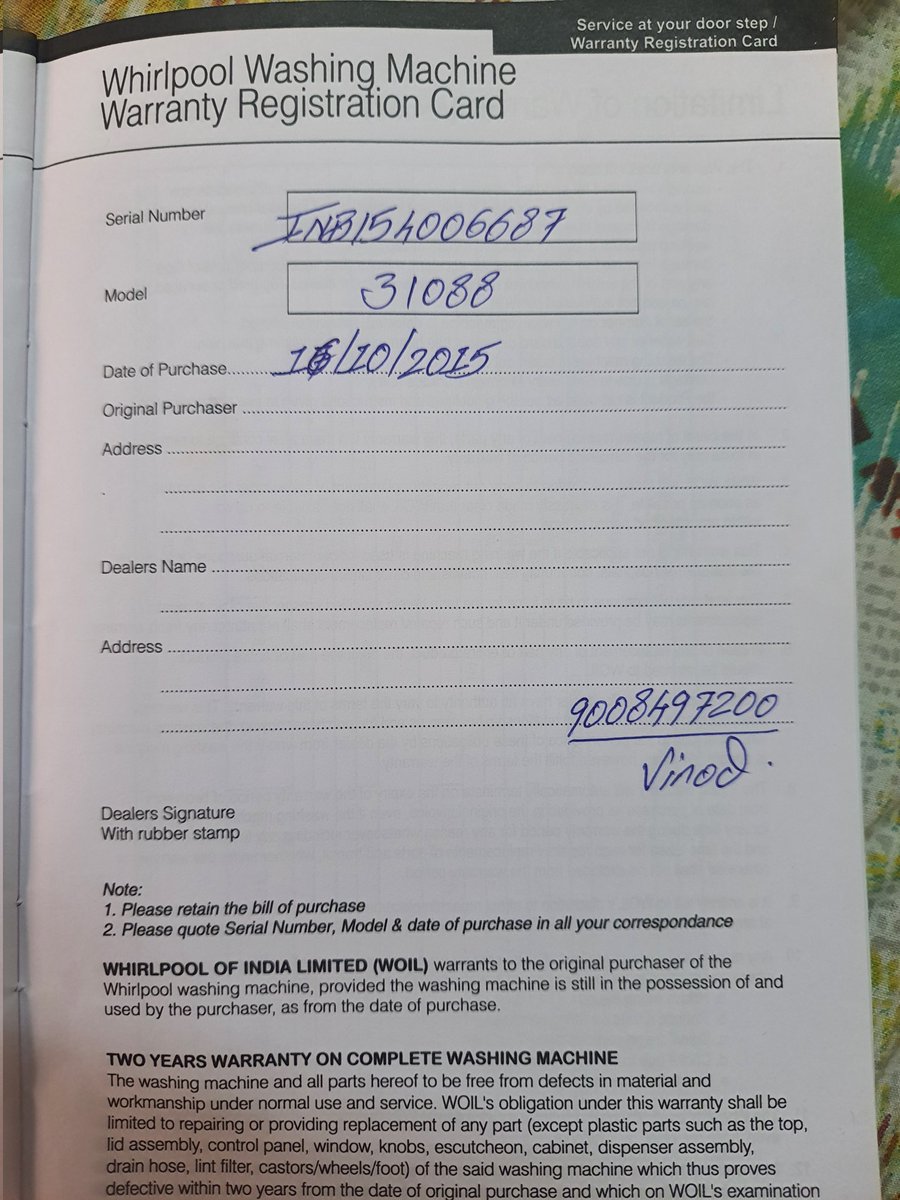 Service at your door step /
Warranty Registration Card
Whirlpool Washing Machine
Warranty Registration Card
Serial Number INB154006687
Model 31088
Date of Purchase 16/10/2015
Original Purchaser
Address
Dealers Name
Address
9008497200
Vinod.
Dealers Signature
With rubber stamp
Note:
1. Please retain the bill of purchase
2. Please quote Serial Number, Model & date of purchase in all your correspondance
WHIRLPOOL OF INDIA LIMITED (WOIL) warrants to the original purchaser of the
Whirlpool washing machine, provided the washing machine is still in the possession of and
used by the purchaser, as from the date of purchase.
TWO YEARS WARRANTY ON COMPLETE WASHING MACHINE
The washing machine and all parts hereof to be free from defects in material and
workmanship under normal use and service. WOIL's obligation under this warranty shall be
limited to repairing or providing replacement of any part (except plastic parts such as the top,
lid assembly, control panel, window, knobs, escutcheon, cabinet, dispenser assembly,
drain hose, lint filter, castors/wheels/foot) of the said washing machine which thus proves
defective within two years from the date of original purchase and which on WOIL's examination